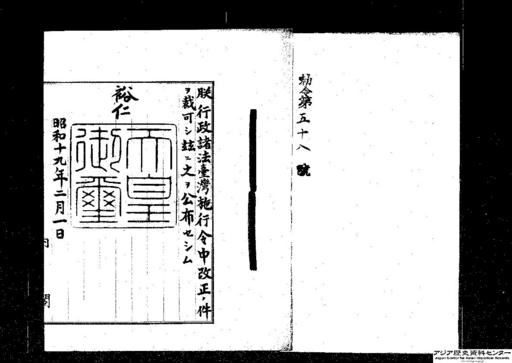 勅令第五十八號
朕行政諸法臺灣施行令中改正ノ件
ヲ裁可シ玆ニ之ヲ公布セシム
裕仁
天皇
御璽
昭和十九年二月一日
内閣
アジア歴史資料センター
Japan Center for Asian Historical Records